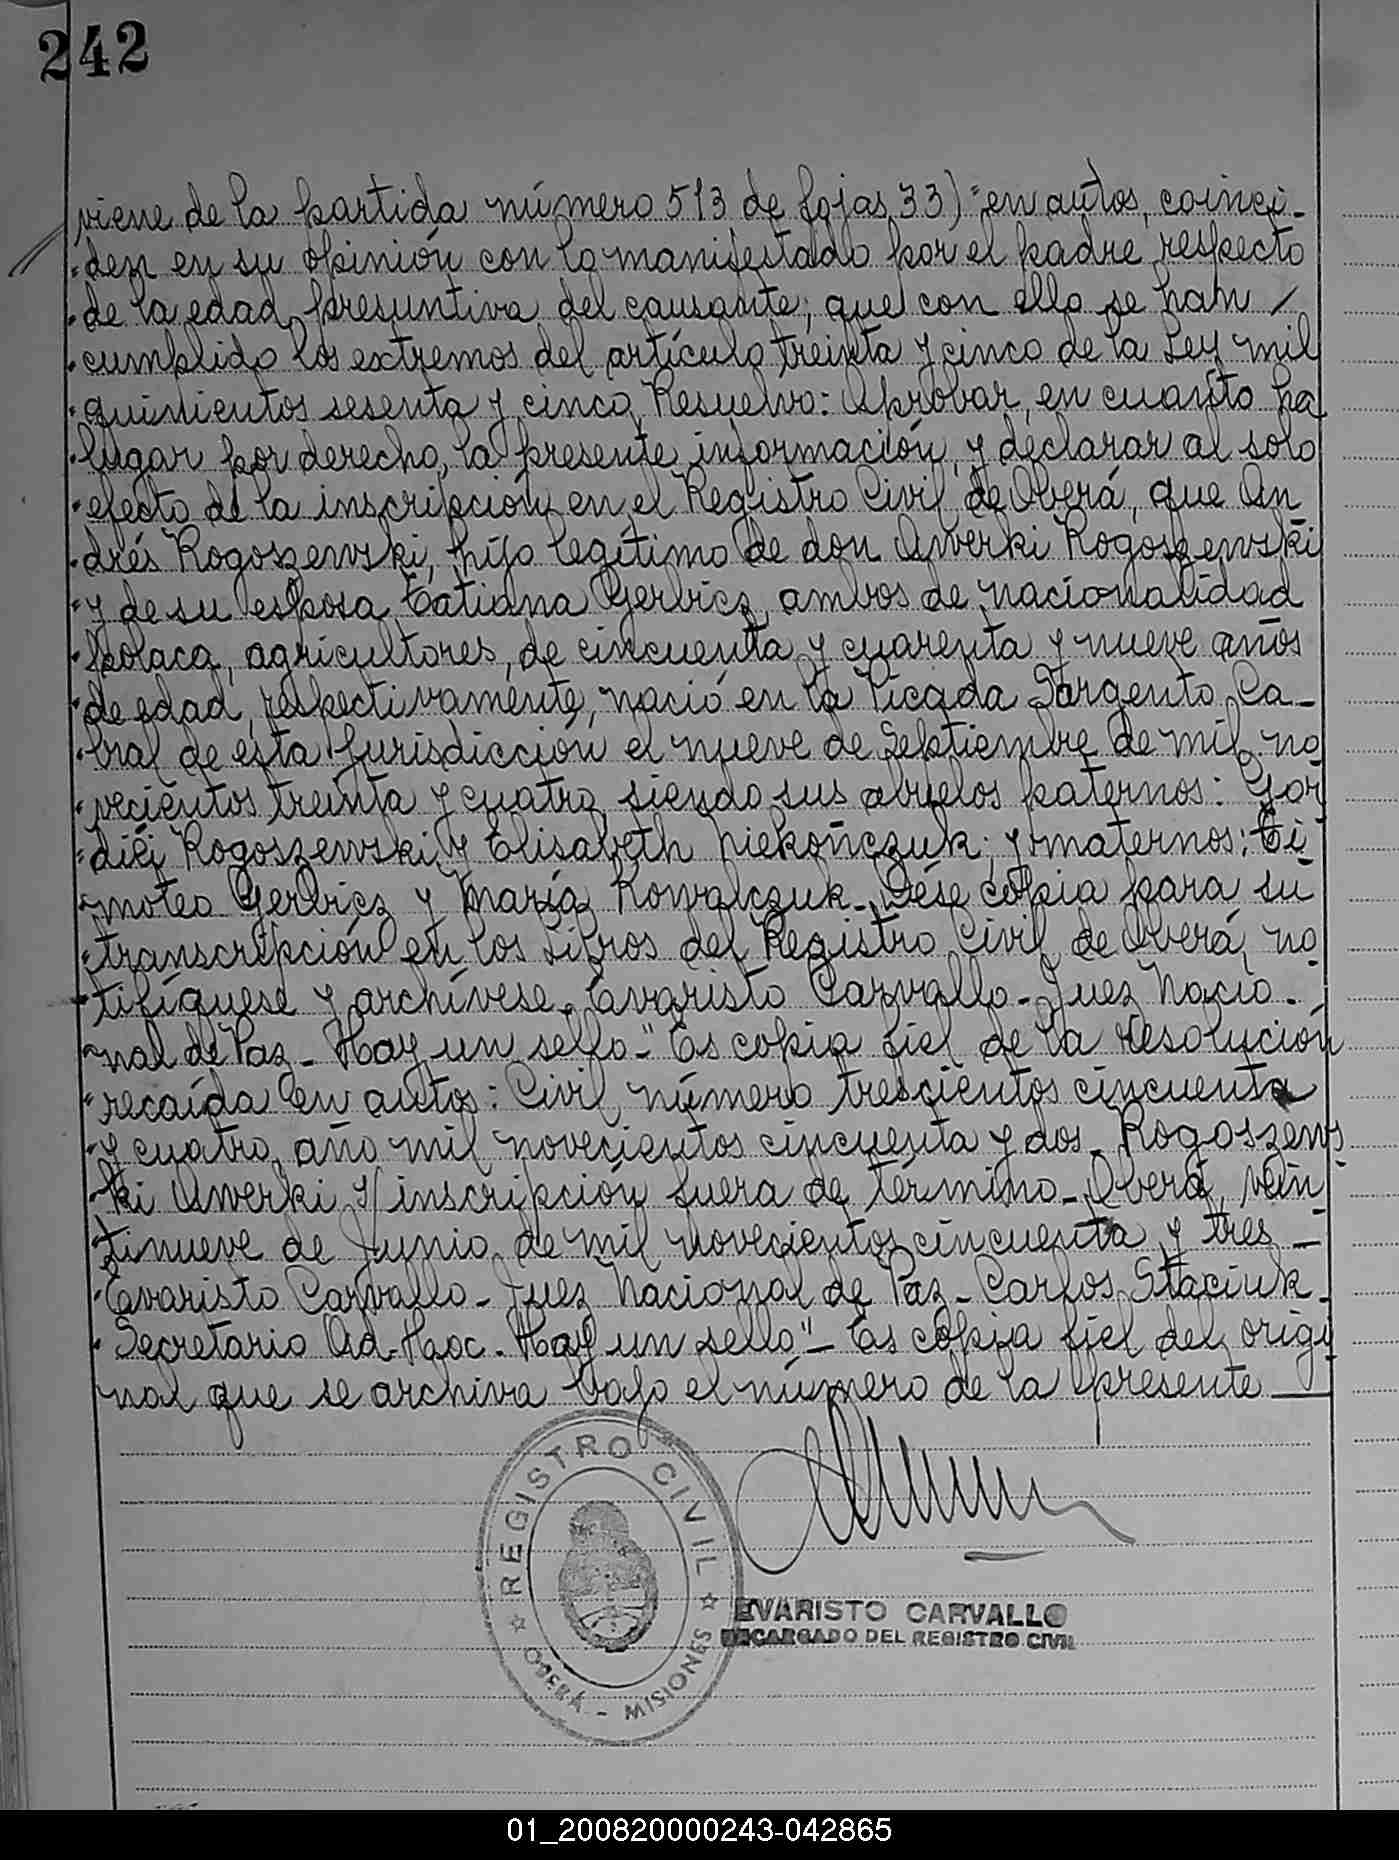 242
viene de la partida número 513 de fojas 33) "en autos, coinci-
"den en su opinión con lo manifestado por el padre respecto
"de la edad presuntiva del causante; que con ello se han /
"cumplido los extremos del artículo treinta y cinco de la Ley mil
"quinientos sesenta y cinco, Resuelvo: Aprobar, en cuanto ha
"lugar por derecho, la presente información, y declarar al solo
"efecto de la inscripción en el Registro Civil de Oberá, que An
"drés Rogoszewski, hijo legítimo de don Awerki Rogoszewski
"y de su esposa Tatiana Gerbicz, ambos de nacionalidad
"polaca, agricultores, de cincuenta y cuarenta y nueve años
"de edad, respectivamente, nació en la Picada Sargento Ca-
"bral de esta Jurisdicción el nueve de Septiembre de mil no
"vecientos treinta y cuatro, siendo sus abuelos paternos:
Rogoszewski y Elisabeth Piekończuk; y maternos: Ti
"moteo Gerbicz y María Kowalczuk. Dése copia para su
"transcripción en los Libros del Registro Civil de Oberá, no
"tifíquese y archívese. Evaristo Carvallo - Juez Nacio-
"nal de Paz - Hay un sello -" Es copia fiel de la resolución
"recaída en autos: Civil, número trescientos cincuenta
"y cuatro, año mil novecientos cincuenta y dos - Rogoszews
"ki Awerki s/inscripción fuera de término - Oberá, vein
"tinueve de Junio de mil novecientos cincuenta y tres -
"Evaristo Carvallo - Juez Nacional de Paz - Carlos Staciuk -
"Secretario Ad-Hoc - Hay un sello" - Es copia fiel del origi
nal que se archiva bajo el número de la presente
REGISTRO CIVIL
OBERÁ - MISIONES
EVARISTO CARVALLO
ENCARGADO DEL REGISTRO CIVIL
01_200820000243-042865